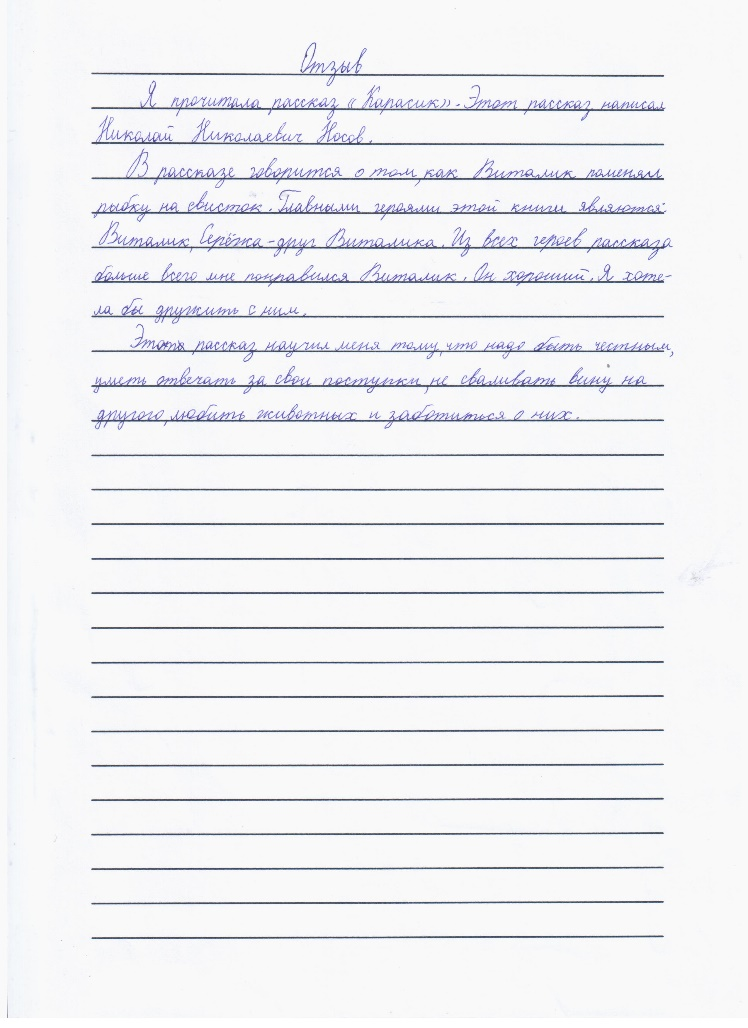 Отзыв
Я прочитала рассказ «Карасик». Этот рассказ написал
Николай Николаевич Носов.
В рассказе говорится о том, как Виталик поменял
рыбку на свисток. Главными героями этой книги являются:
Виталик, Серёжа-друг Виталика. Из всех героев рассказа
больше всего мне понравился Виталик. Он хороший. Я хоте-
ла бы дружить с ним.
рассказ научил меня тому, что надо быть честным,
уметь отвечать за свои поступки, не сваливать вину на
другого, любить животных и заботиться о них.